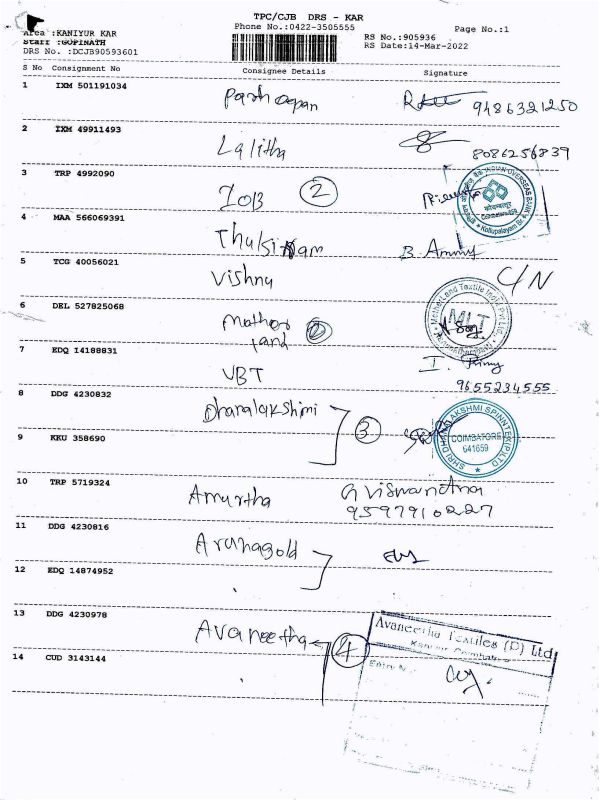 TPC/CJB DRS - KAR
Phone No.:0422-3505555
Page No.:1
Area :KANIYUR KAR
RS No.:905936
Staff :GOPINATH
RS Date:14-Mar-2022
DRS No. :DCJB90593601
S No Consignment No Consignee Details Signature
1 IXM 501191034 9486321250
2 IXM 49911493 Lalitha 8086256839
3 TRP 4992090 IOB 2
INDIAN OVERSEAS BANK
Kollupalayam Br
4 MAA 566069391 Thulsiram B. Ammy
5 TCG 40056021 Vishnu C/N
6 DEL 527825068 Mother land
MotherLand Textile India Pvt Ltd
MLT
7 EDQ 14188831 VBT
9655234555
8 DDG 4230832 Dhanalakshmi 3
9 KKU 358690
SHRI DHANALAKSHMI SPINNTEX (P) LTD
COIMBATORE
641659
10 TRP 5719324 Amurtha G Viswanatha
9597910227
11 DDG 4230816 Arunagold
12 EDQ 14874952
13 DDG 4230978 Avaneetha 4
14 CUD 3143144
Avaneetha Textiles (P) Ltd
Kaniyur Coimbatore
Entry N